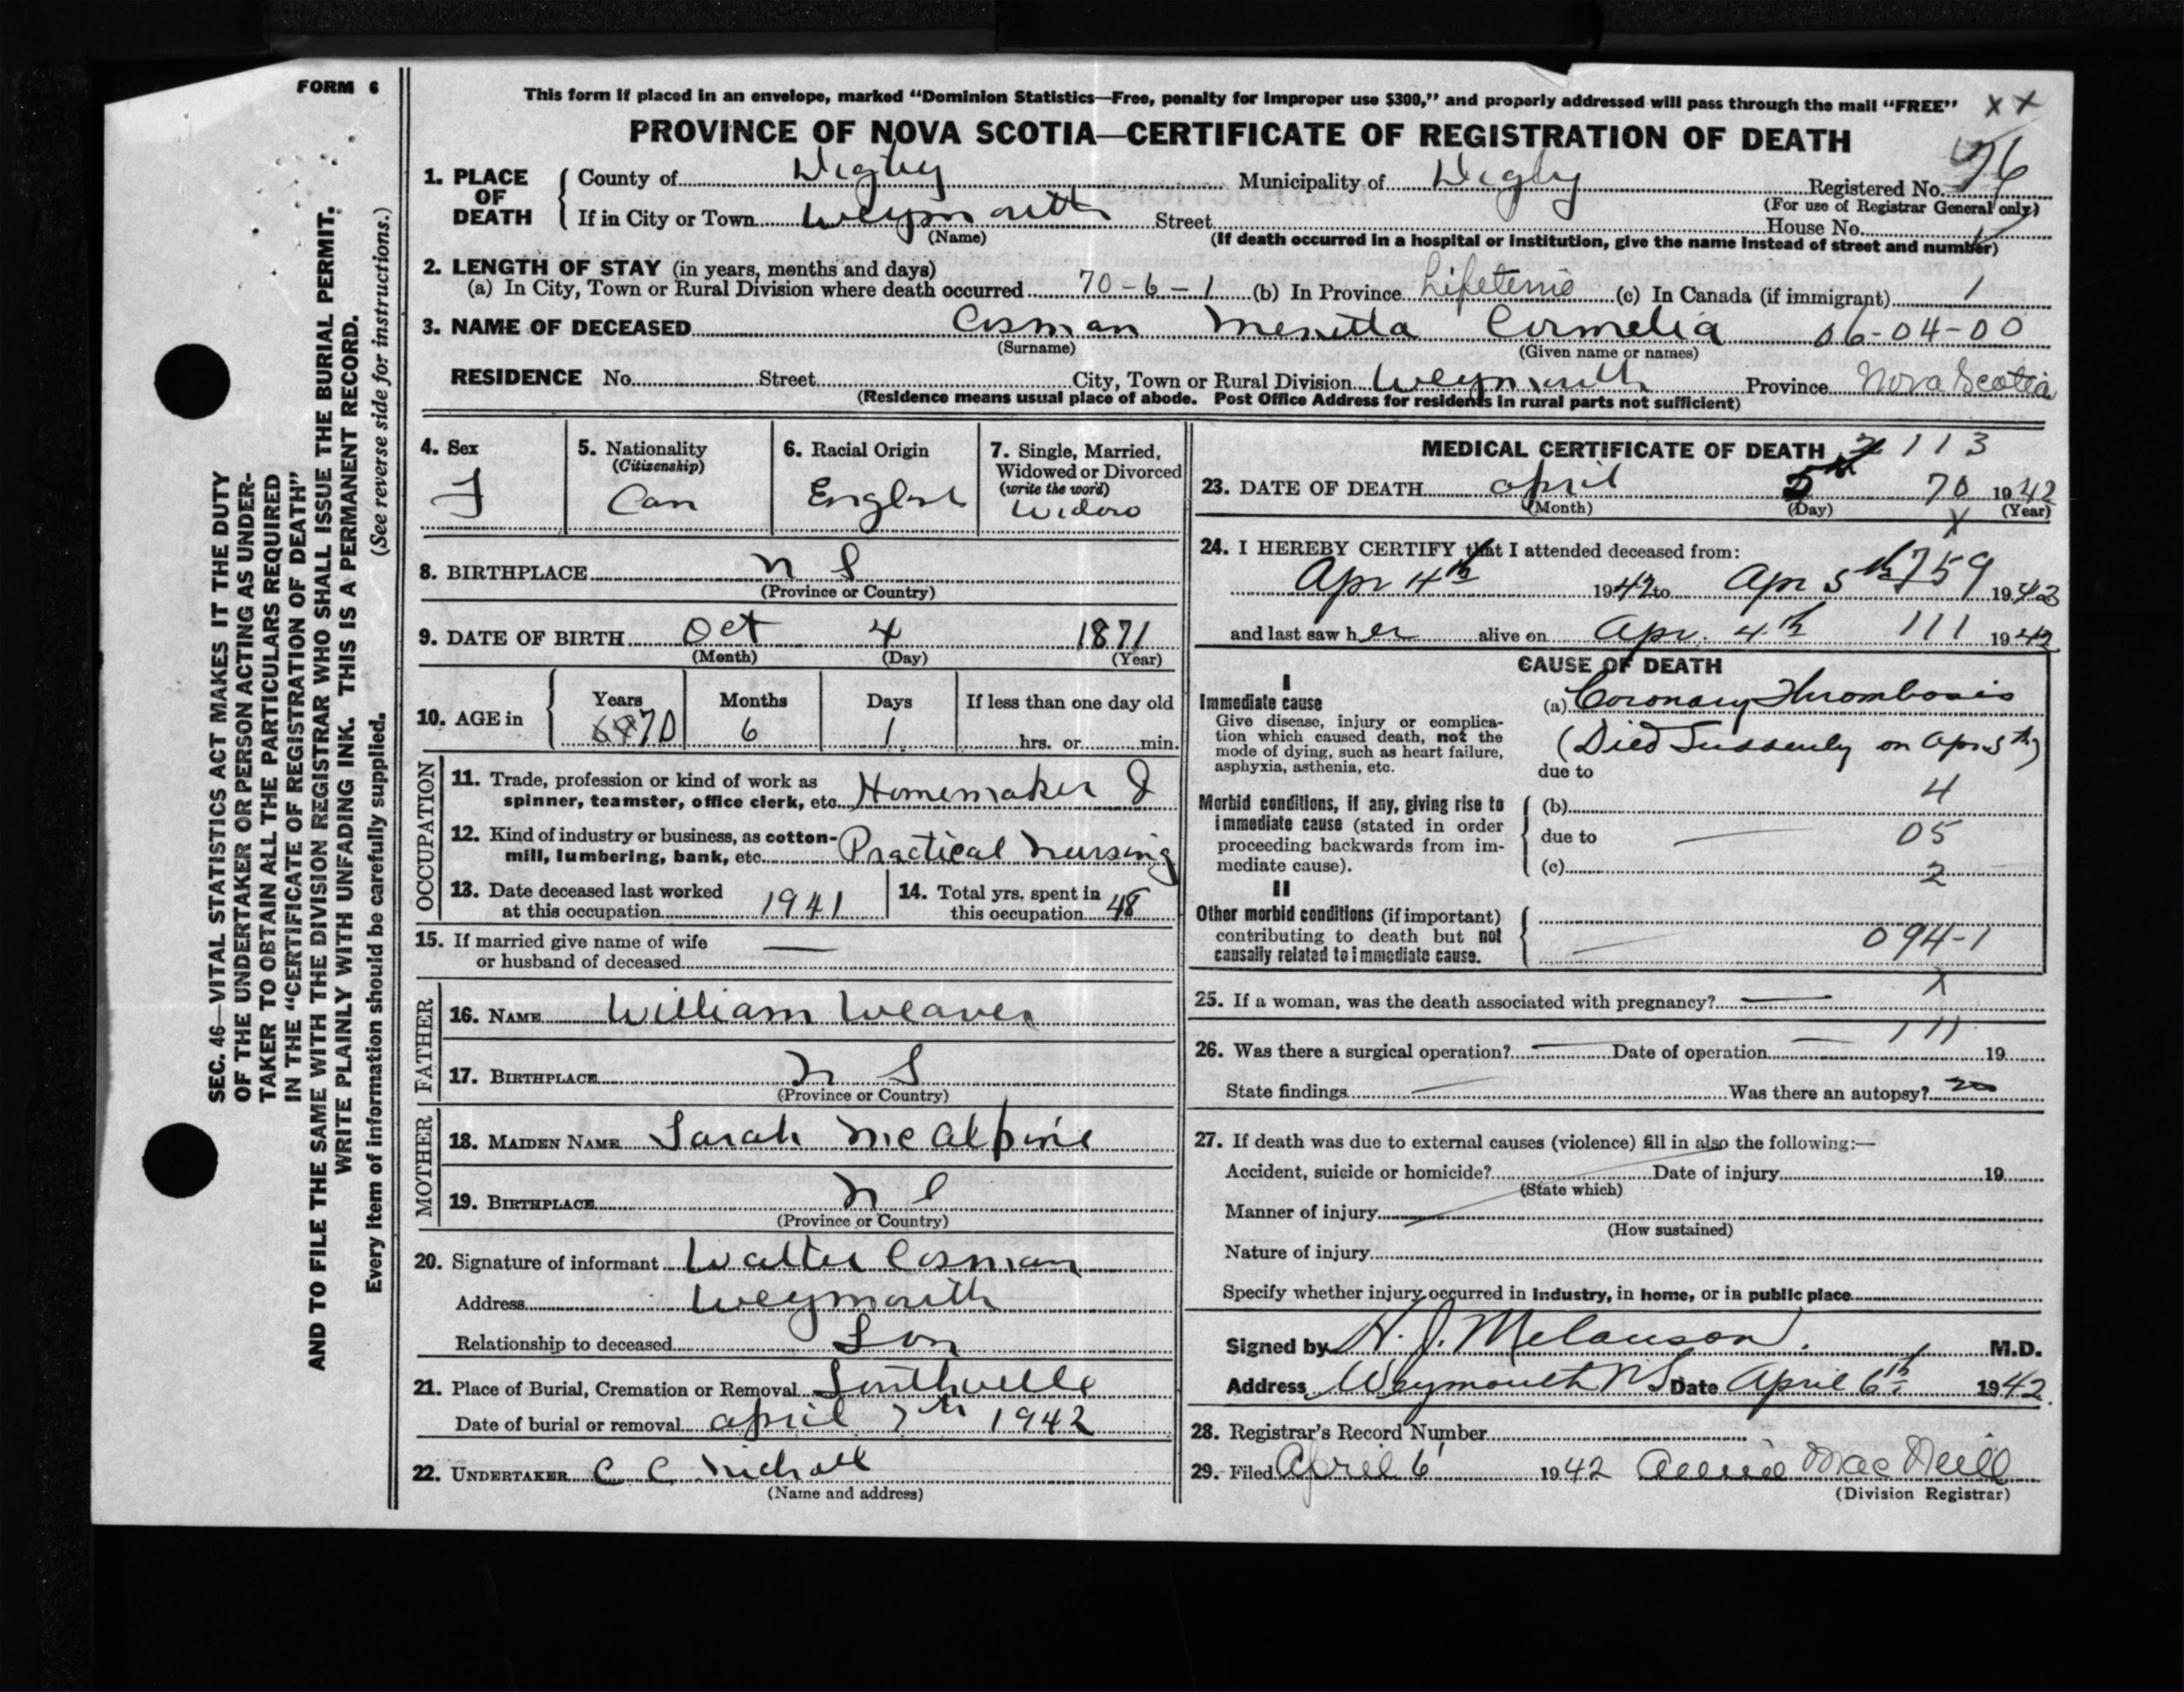 FORM 6
This form if placed in an envelope, marked "Dominion Statistics—Free, penalty for improper use $300," and properly addressed will pass through the mail "FREE" XX
PROVINCE OF NOVA SCOTIA—CERTIFICATE OF REGISTRATION OF DEATH
1. PLACE OF DEATH
County of Digby Municipality of Digby Registered No. 76
(For use of Registrar General only)
If in City or Town Weymouth Street House No.
(Name) (If death occurred in a hospital or institution, give the name instead of street and number)
2. LENGTH OF STAY (in years, months and days)
(a) In City, Town or Rural Division where death occurred 70-6-1 (b) In Province Lifetime (c) In Canada (if immigrant) 1
3. NAME OF DECEASED Cosman Menetta Cormelia 06-04-00
(Surname) (Given name or names)
RESIDENCE No. Street City, Town or Rural Division Weymouth Province Nova Scotia
(Residence means usual place of abode. Post Office Address for residents in rural parts not sufficient)
4. Sex F
5. Nationality (Citizenship) Can
6. Racial Origin English
7. Single, Married, Widowed or Divorced (write the word) Widow
8. BIRTHPLACE N S
(Province or Country)
9. DATE OF BIRTH Oct 4 1871
(Month) (Day) (Year)
10. AGE in Years 70 Months 6 Days 1 If less than one day old hrs. or min.
OCCUPATION
11. Trade, profession or kind of work as
spinner, teamster, office clerk, etc. Homemaker &
12. Kind of industry or business, as cotton-
mill, lumbering, bank, etc. Practical Nursing
13. Date deceased last worked
at this occupation 1941
14. Total yrs. spent in
this occupation 48
15. If married give name of wife
or husband of deceased —
FATHER
16. NAME William Weaver
17. BIRTHPLACE N S
(Province or Country)
MOTHER
18. MAIDEN NAME Sarah McAlpine
19. BIRTHPLACE N S
(Province or Country)
20. Signature of informant Walter Cosman
Address Weymouth
Relationship to deceased Son
21. Place of Burial, Cremation or Removal Southville
Date of burial or removal April 7th 1942
22. UNDERTAKER C C Nicholl
(Name and address)
MEDICAL CERTIFICATE OF DEATH 113
23. DATE OF DEATH April 5th 70 1942
(Month) (Day) (Year)
X
24. I HEREBY CERTIFY that I attended deceased from:
Apr 4th 1942 to Apr 5th 759 1942
and last saw her alive on Apr. 4th 111 1942
CAUSE OF DEATH
I
Immediate cause
Give disease, injury or complica-
tion which caused death, not the
mode of dying, such as heart failure,
asphyxia, asthenia, etc.
(a) Coronary Thrombosis
(Died Suddenly on Apr 5th)
due to
4
Morbid conditions, if any, giving rise to
immediate cause (stated in order
proceeding backwards from im-
mediate cause).
(b)
due to — 05
(c) 2
II
Other morbid conditions (if important)
contributing to death but not
causally related to immediate cause.
— 094-1
X
25. If a woman, was the death associated with pregnancy? —
111
26. Was there a surgical operation? — Date of operation — 19
State findings — Was there an autopsy? no
27. If death was due to external causes (violence) fill in also the following:—
Accident, suicide or homicide? Date of injury 19
(State which)
Manner of injury
(How sustained)
Nature of injury
Specify whether injury occurred in industry, in home, or in public place
Signed by H. J. Melanson M.D.
Address Weymouth N S Date April 6th 1942.
28. Registrar's Record Number
29. Filed April 6 1942 Annie MacNeill
(Division Registrar)
SEC. 46—VITAL STATISTICS ACT MAKES IT THE DUTY
OF THE UNDERTAKER OR PERSON ACTING AS UNDER-
TAKER TO OBTAIN ALL THE PARTICULARS REQUIRED
IN THE "CERTIFICATE OF REGISTRATION OF DEATH"
AND TO FILE THE SAME WITH THE DIVISION REGISTRAR WHO SHALL ISSUE THE BURIAL PERMIT.
WRITE PLAINLY WITH UNFADING INK. THIS IS A PERMANENT RECORD.
Every item of information should be carefully supplied. (See reverse side for instructions.)